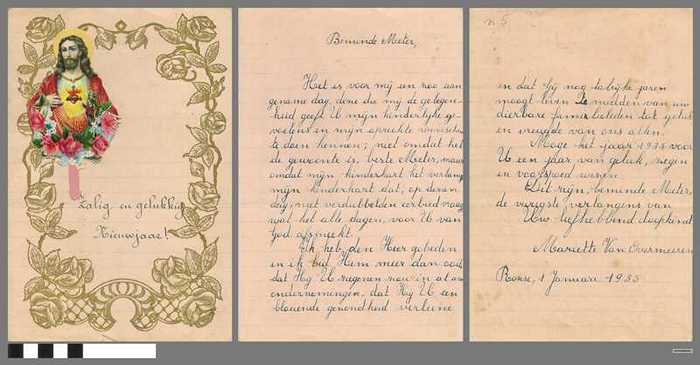 Zalig en gelukkig
Nieuwjaar!
Beminde Meter,
Het is voor mij een zoo aan
gename dag, deze die mij de gelegen-
heid geeft U mijn kinderlijke ge-
voelens en mijn oprechte wenschen
te doen kennen; niet omdat het
de gewoonte is, beste Meter, maar
omdat mijn kinderhart het verlangt
mijn kinderhart dat, op dezen
dag, met verdubbelden eerbied vraag
wat het alle dagen, voor U van
God afsmeekt.
Ik heb den Heer gebeden
en ik bid Hem meer dan ooit
dat Hij U zegenen zou in al uw
ondernemingen, dat Hij U een
bloeiende gezondheid verleene
n 5
en dat Gij nog talrijke jaren
moogt leven te midden van uw
dierbare familieleden tot geluk
en vreugde van ons allen.
Moge het jaar 1935 voor
U een jaar van geluk, zegen
en voorspoed wezen.
Dit zijn, beminde Meter,
de vurigste verlangens van
Uw liefhebbend doopkind
Mariette Van Overmeeren
Ronse, 1 Januari 1935